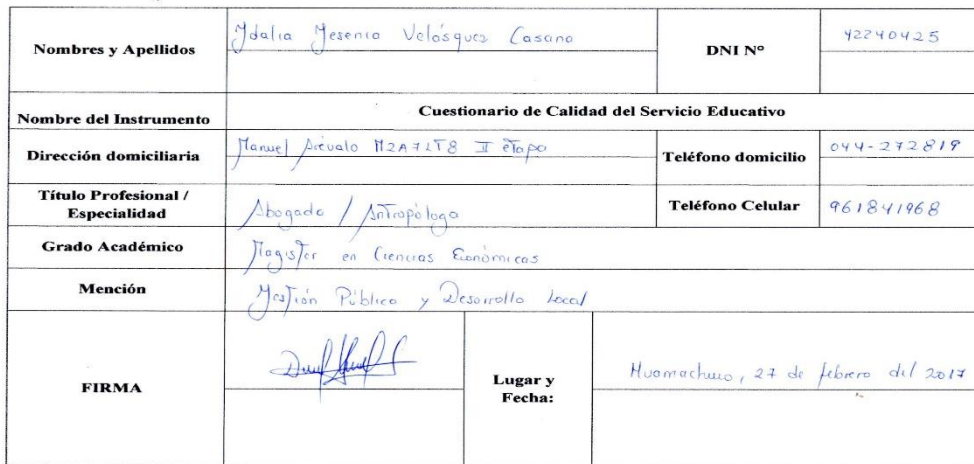 Nombres y Apellidos
Ydalia Yesenia Velásquez Casana
DNI Nº
42240425
Nombre del Instrumento
Cuestionario de Calidad del Servicio Educativo
Dirección domiciliaria
Manuel Arévalo MzA72LT8 II etapa
Teléfono domicilio
044-272819
Título Profesional /
Especialidad
Abogada / Antropóloga
Teléfono Celular
961841968
Grado Académico
Magister en Ciencias Económicas
Mención
Gestión Público y Desarrollo Local
FIRMA
Lugar y
Fecha:
Huamachuco, 27 de febrero del 2017